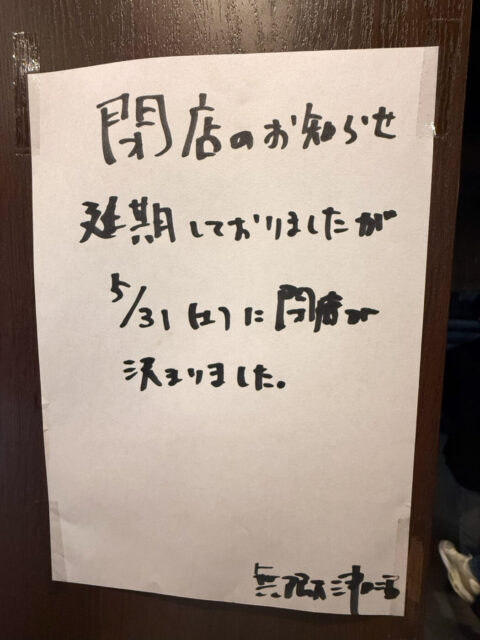 閉店のお知らせ
延期しておりましたが
5/31(土)に閉店が
決まりました。